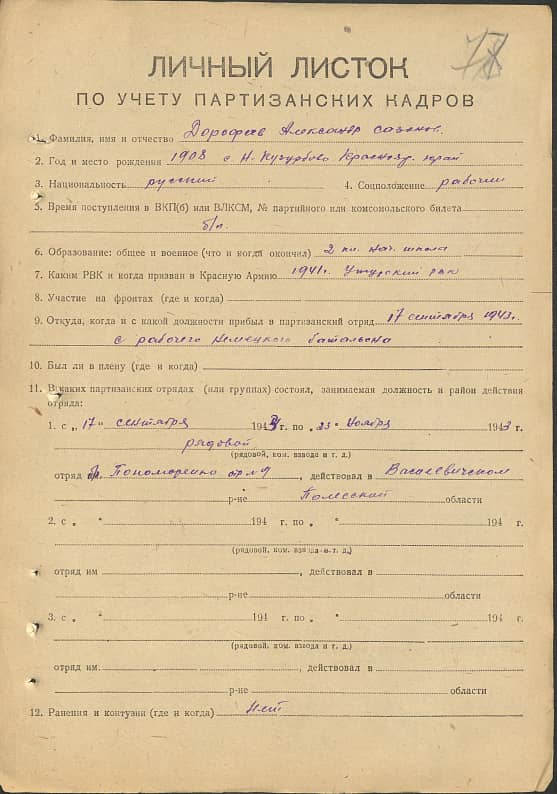 ЛИЧНЫЙ ЛИСТОК
ПО УЧЕТУ ПАРТИЗАНСКИХ КАДРОВ
1. Фамилия, имя и отчество Дорофеев Александр Сазонов.
2. Год и место рождения 1908 с Н. Красноя. край
3. Национальность русский 4. Соцположение рабочий
5. Время поступления в ВКП(б) или ВЛКСМ, № партийного или комсомольского билета
б/п.
6. Образование: общее и военное (что и когда окончил) 2 кл. нач. школа
7. Каким РВК и когда призван в Красную Армию 1941г. Ужурский рвк
8. Участие на фронтах (где и когда)
9. Откуда, когда и с какой должности прибыл в партизанский отряд 17 сентября 1943г.
с рабочего немецкого батальона
10. Был ли в плену (где и когда)
11. В каких партизанских отрядах (или группах) состоял, занимаемая должность и район действия
отряда:
1. с „17" сентября 1943 г. по „23" ноября 1943 г.
рядовой
(рядовой, ком. взвода и т. д.)
отряд бр. Пономоренко отр №9, действовал в Василевичском
р-не Полесской области
2. с „ " 194 г. по „ " 194 г.
(рядовой, ком. взвода и т. д.)
отряд им , действовал в
р-не области
3. с „ " 194 г. по „ " 194 г.
(рядовой, ком. взвода и т. д.)
отряд им. , действовал в
р-не области
12. Ранения и контузии (где и когда) Нет